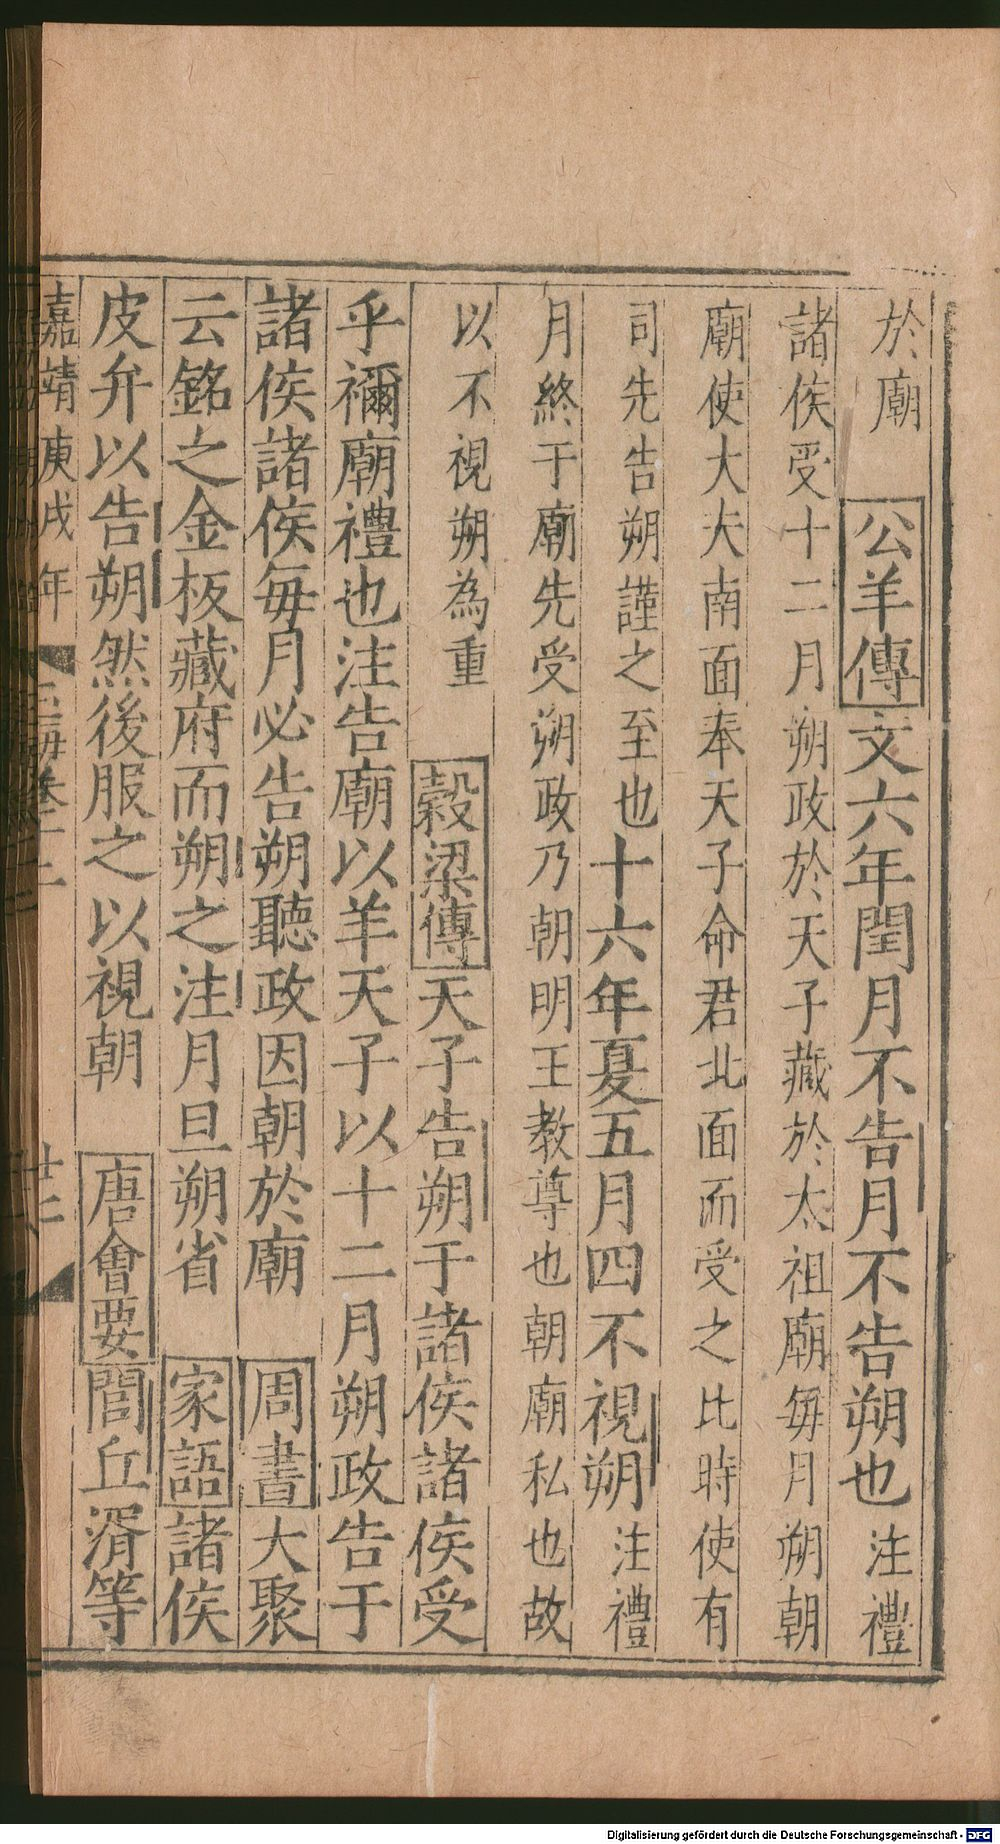 於廟公羊傳文六年閏月不告月不告朔也注禮
諸侯受十二月朔政於天子藏於太祖廟每月朔朝
廟使大夫南面奉天子命君北面而受之比時使有
司先告朔謹之至也十六年夏五月四不視朔注禮
月終于廟先受朔政乃朝明王教尊也朝廟私也故
以不視朔為重 穀梁傳天子告朔于諸侯諸侯受
乎禰廟禮也注告廟以羊天子以十二月朔政告于
諸侯諸侯每月必告朔聽政因朝於廟 周書大聚
云銘之金板藏府而朔之注月旦朔省 家語諸侯
皮弁以告朔然後服之以視朝 唐會要閭丘湑等
嘉靖庚戌年 玉海卷十二 廿二
Digitalisierung gefördert durch die Deutsche Forschungsgemeinschaft - DFG